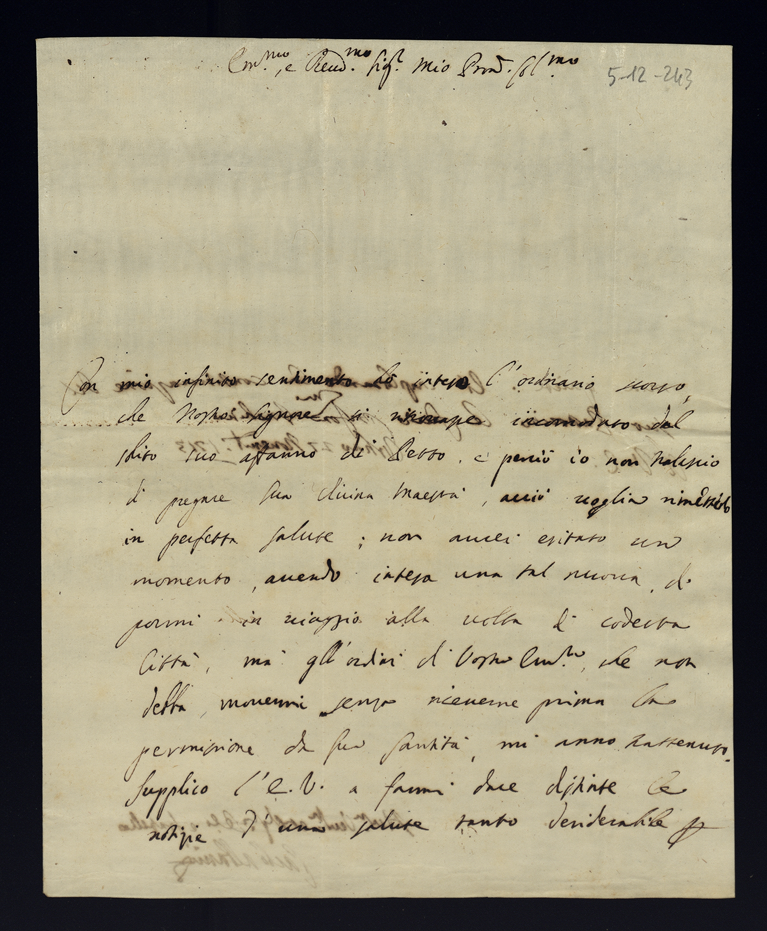 Em.mo, e Reud.mo Sig.r Mio Prōn. Col.mo
5-12-243
Con mio infinito sentimento ho inteso l'ordinario scorso,
che Nostro Signore si ritrovasse incomodato dal
solito suo affanno di Petto, e perciò io non tralascio
di pregare Sua divina Maestà, acciò voglia rimetterlo
in perfetta salute; non averei esitato un
momento, avendo intesa una tal nuova, di
pormi in viaggio alla volta di codesta
Città, mà gl'ordini di Vostra Em.za, che non
debba movermi senza riceverne prima la
permissione da Sua Santità, mi anno trattenuto.
Supplico l'E.V. a farmi dare distinte le
notizie d'una salute tanto desiderabile